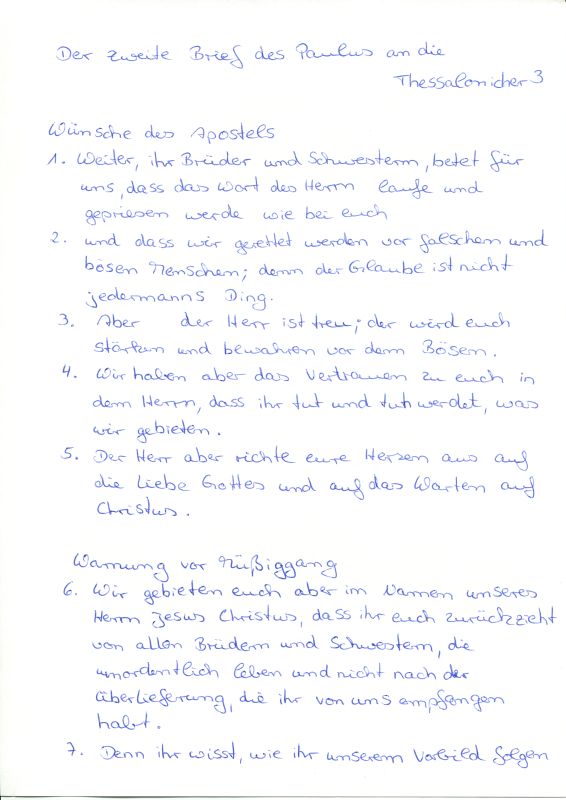 Der zweite Brief des Paulus an die
Thessalonicher 3
Wünsche des Apostels
1. Weiter, ihr Brüder und Schwestern, betet für
uns, dass das Wort des Herrn laufe und
gepriesen werde wie bei euch
2. und dass wir gerettet werden vor falschen und
bösen Menschen; denn der Glaube ist nicht
jedermanns Ding.
3. Aber der Herr ist treu; der wird euch
stärken und bewahren vor dem Bösen.
4. Wir haben aber das Vertrauen zu euch in
dem Herrn, dass ihr tut und tun werdet, was
wir gebieten.
5. Der Herr aber richte eure Herzen aus auf
die Liebe Gottes und auf das Warten auf
Christus.
Warnung vor Müßiggang
6. Wir gebieten euch aber im Namen unseres
Herrn Jesus Christus, dass ihr euch zurückzieht
von allen Brüdern und Schwestern, die
unordentlich leben und nicht nach der
Überlieferung, die ihr von uns empfangen
habt.
7. Denn ihr wisst, wie ihr unserem Vorbild folgen